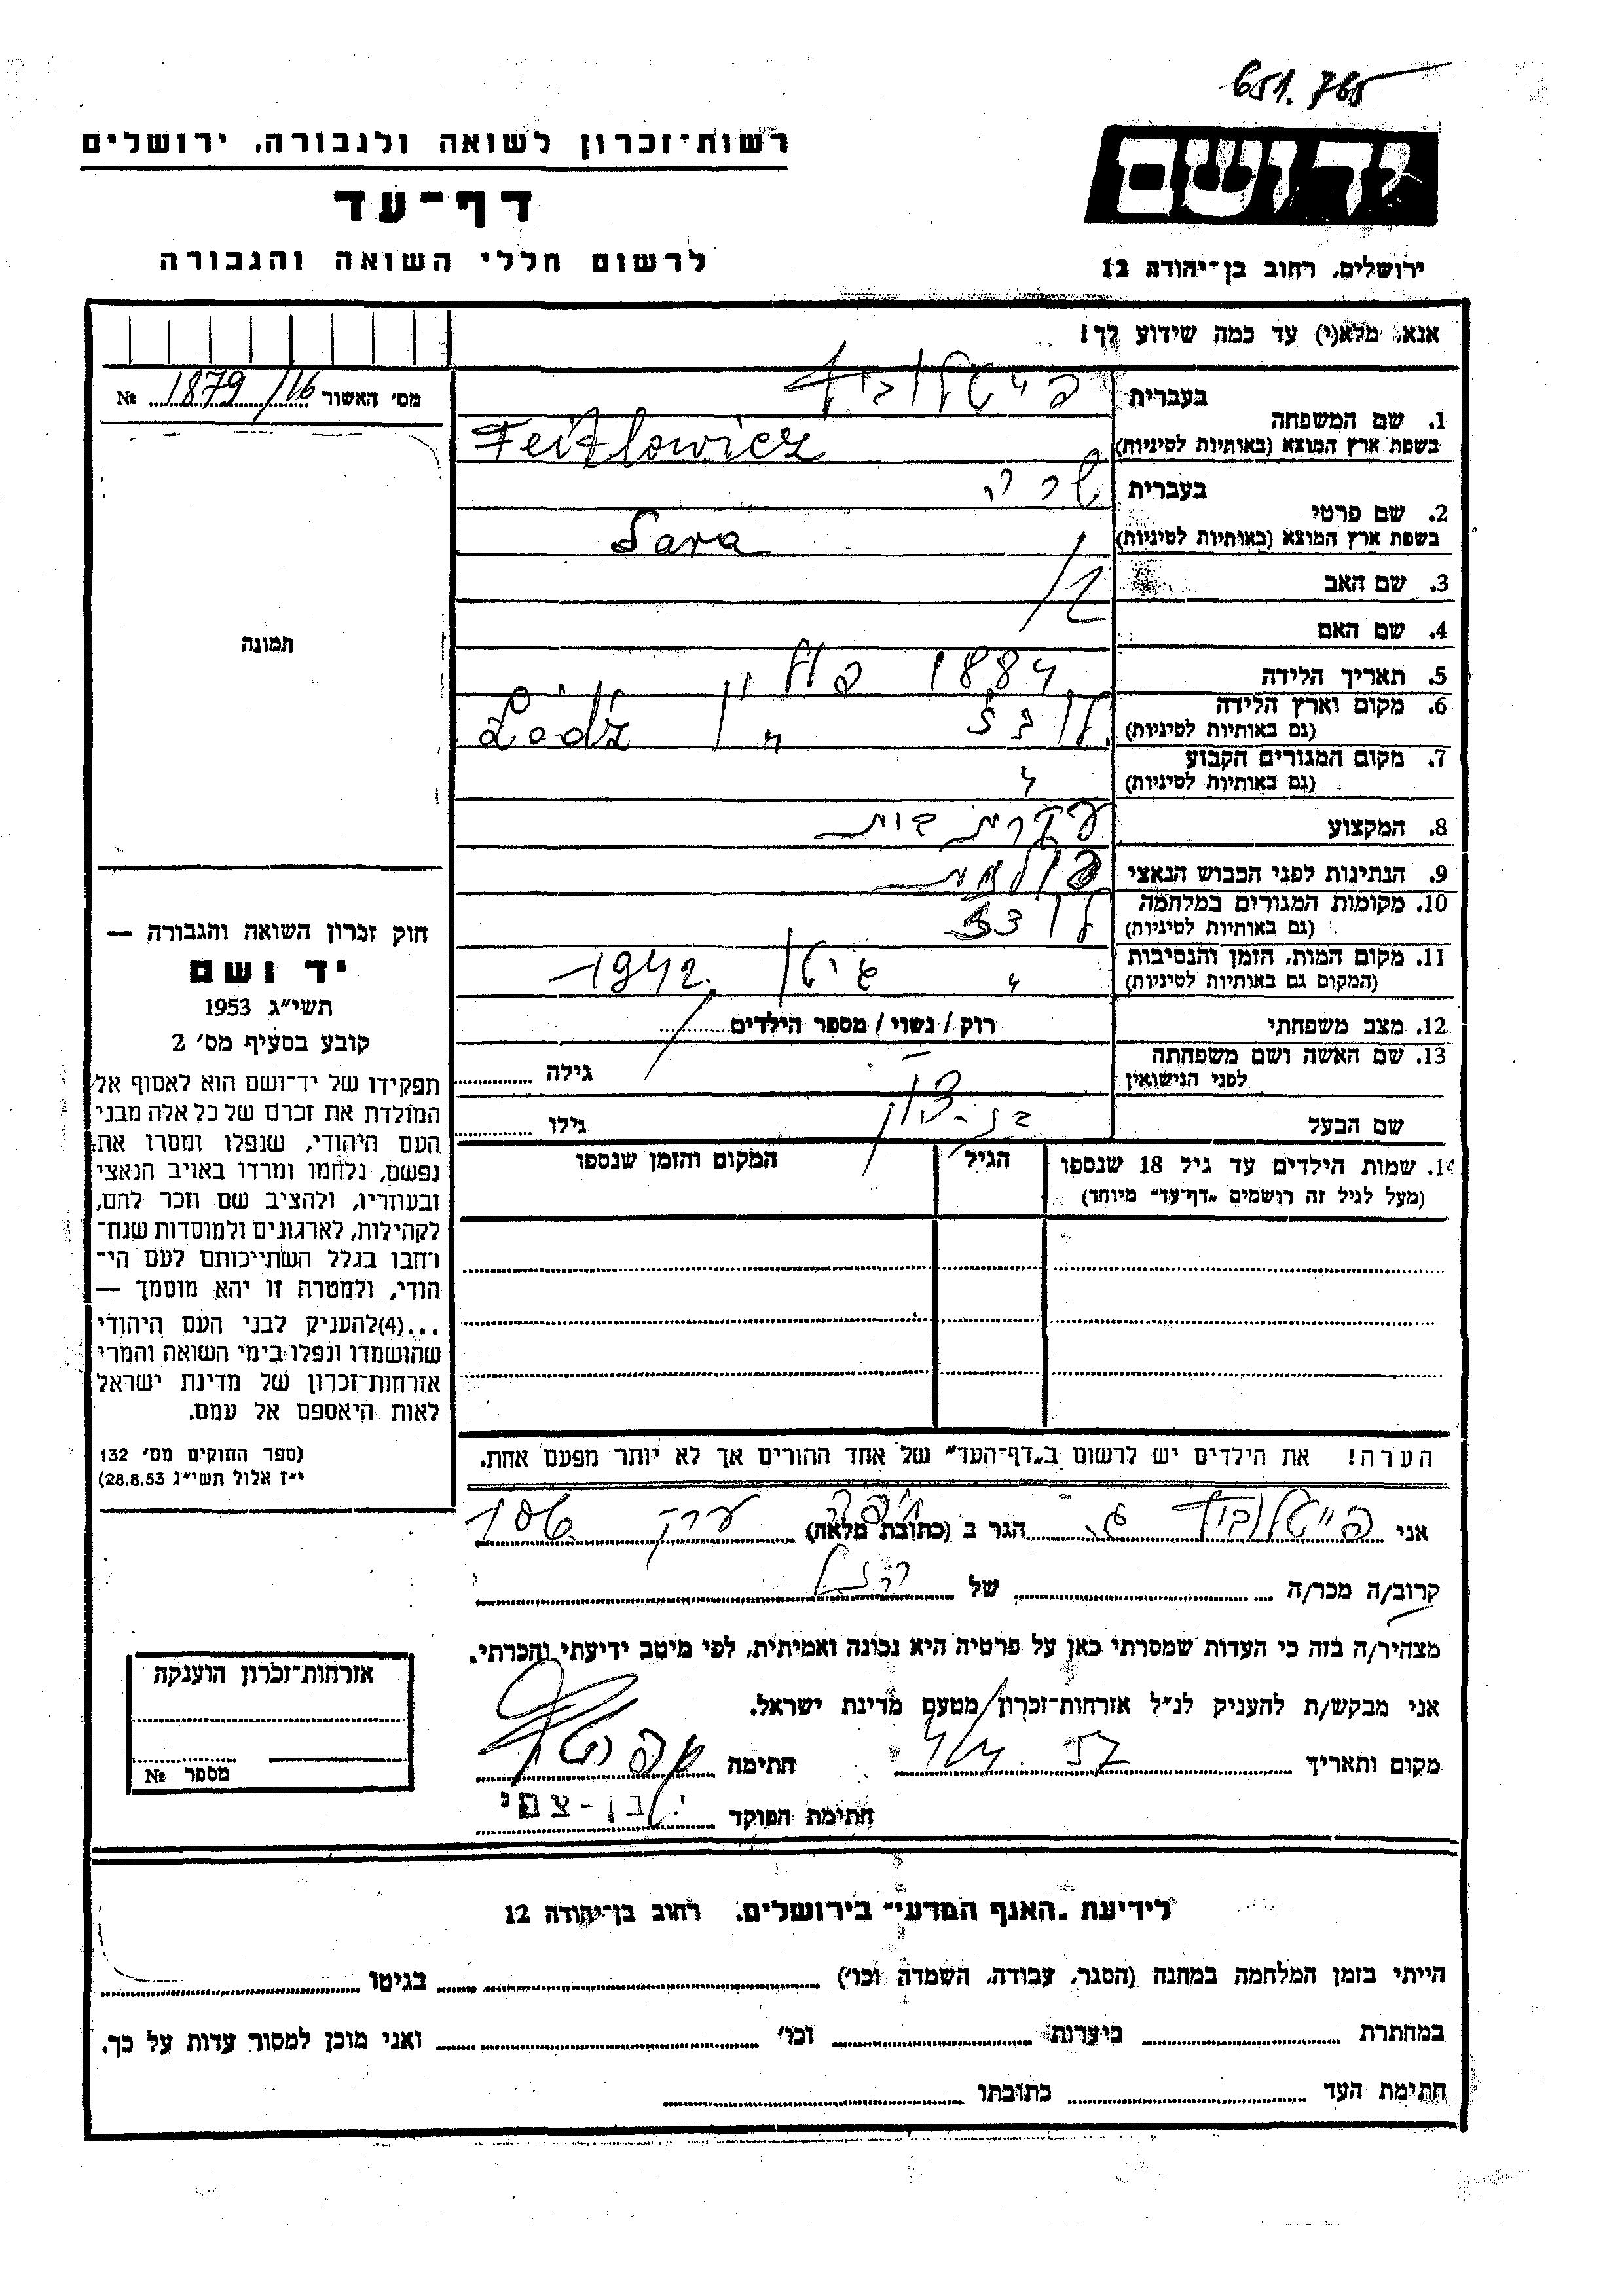 651.765
רשות־זכרון לשואה ולגבורה, ירושלים
יד ושם
דף־עד
לרשום חללי השואה והגבורה
ירושלים, רחוב בן־יהודה 12
אנא, מלא(י) עד כמה שידוע לך!
מס' האשור 1879/16 №
תמונה
1. שם המשפחה
בעברית פייטלוביץ
בשפת ארץ המוצא (באותיות לטיניות) Feitlowicz
2. שם פרטי
בעברית שרה
בשפת ארץ המוצא (באותיות לטיניות) Sara
3. שם האב
4. שם האם
5. תאריך הלידה 1884 פולין
6. מקום וארץ הלידה
(גם באותיות לטיניות) לודז Lodz
7. מקום המגורים הקבוע
(גם באותיות לטיניות) "
8. המקצוע עקרת בית
9. הנתינות לפני הכבוש הנאצי פולנית
10. מקומות המגורים במלחמה
(גם באותיות לטיניות) לודז
11. מקום המות, הזמן והנסיבות
(המקום גם באותיות לטיניות) " גיטו 1942
12. מצב משפחתי רוק / נשוי / מספר הילדים
13. שם האשה ושם משפחתה
לפני הנישואין גילה
שם הבעל בן-ציון גילו
14. שמות הילדים עד גיל 18 שנספו הגיל המקום והזמן שנספו
(מעל לגיל זה רושמים „דף־עד" מיוחד)
חוק זכרון השואה והגבורה —
יד ושם
תשי"ג 1953
קובע בסעיף מס' 2
תפקידו של יד־ושם הוא לאסוף אל
המולדת את זכרם של כל אלה מבני
העם היהודי, שנפלו ומסרו את
נפשם, נלחמו ומרדו באויב הנאצי
ובעוזריו, ולהציב שם וזכר להם,
לקהילות, לארגונים ולמוסדות שנח־
רחבו בגלל השתייכותם לעם הי־
הודי, ולמטרה זו יהא מוסמך —
...(4)להעניק לבני העם היהודי
שהושמדו ונפלו בימי השואה והמרי
אזרחות־זכרון של מדינת ישראל
לאות היאספם אל עמם.
(ספר החוקים מס' 132
י"ז אלול תשי"ג 28.8.53)
הערה! את הילדים יש לרשום ב„דף־העד" של אחד ההורים אך לא יותר מפעם אחת.
אני פייטלוביץ הגר ב (כתובת מלאה) חיפה
קרוב/ה מכר/ה של
מצהיר/ה בזה כי העדות שמסרתי כאן על פרטיה היא נכונה ואמיתית, לפי מיטב ידיעתי והכרתי.
אני מבקש/ת להעניק לנ"ל אזרחות־זכרון מטעם מדינת ישראל.
מקום ותאריך חתימה
חתימת הפוקד י. בן-צבי
אזרחות־זכרון הוענקה
מספר №
לידיעת „האגף המדעי" בירושלים, רחוב בן־יהודה 12
הייתי בזמן המלחמה במחנה (הסגר, עבודה, השמדה וכו') בגיטו
במחתרת ביערות וכו' ואני מוכן למסור עדות על כך.
חתימת העד כתובתו